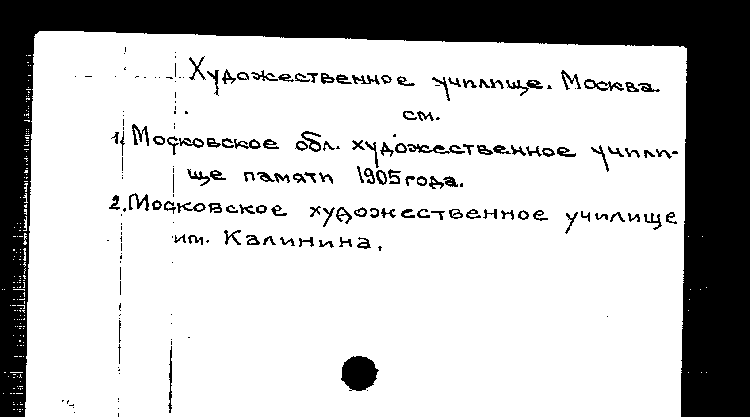 Художественное училище. Москва.
см.
1. Московское обл. художественное учили-
ще памяти 1905 года.
2. Московское художественное училище
им. Калинина.